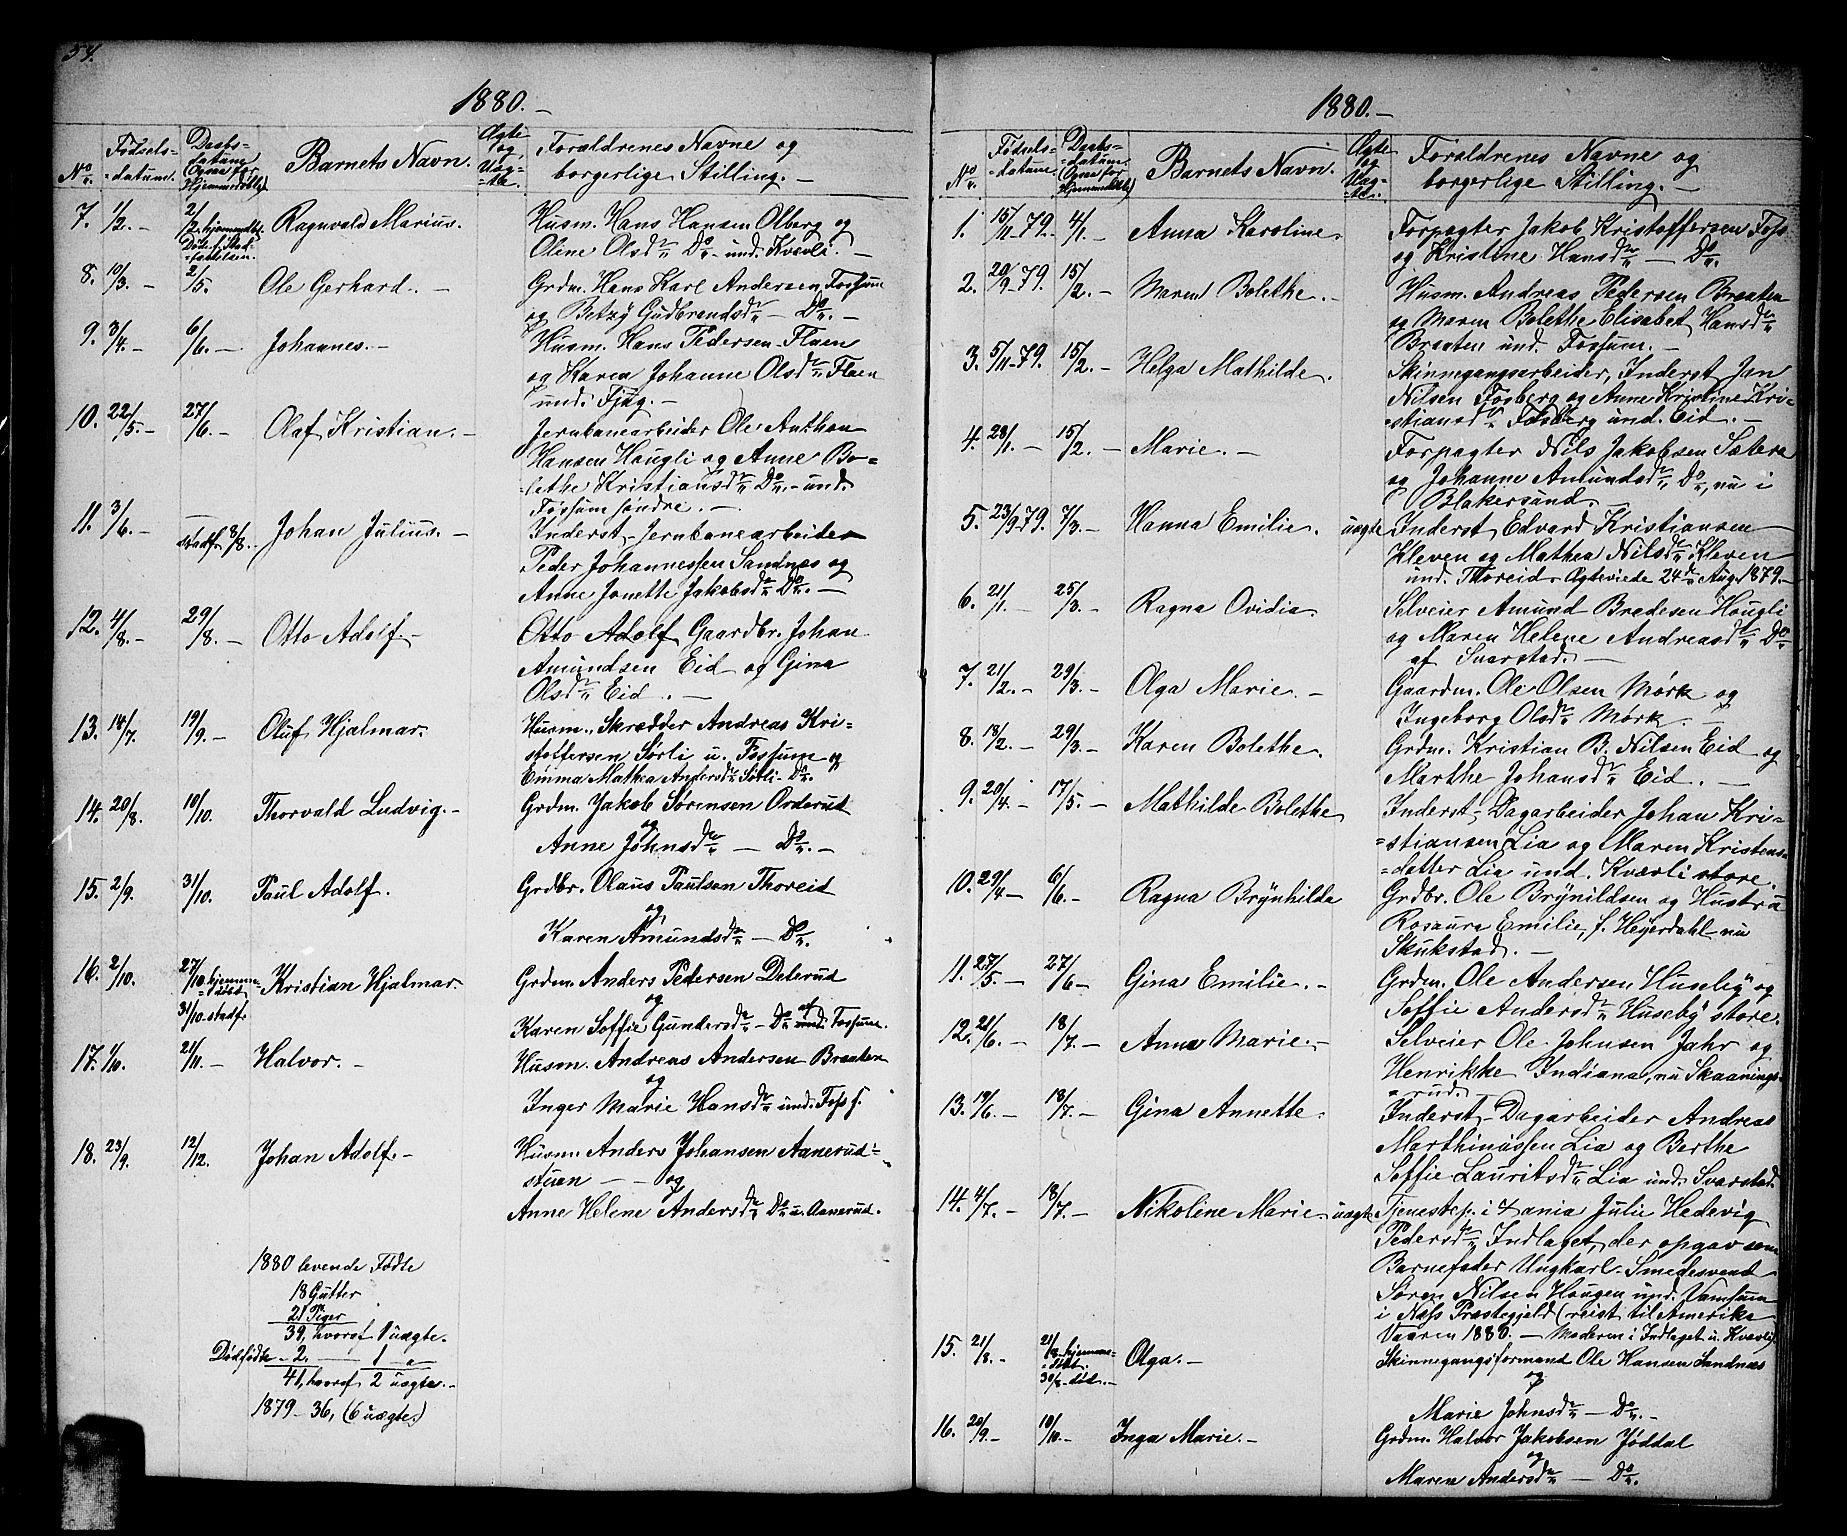 54.
1880.-
No. Fødsels-datum. Daabs-datum (Ogsaa for Hjemmedøbte) Barnets Navn. Ægte og Uægte. Forældrenes Navne og borgerlige Stilling.-
7. 1/2.- 2/2. hjemmedbt. Ragnvald Marius. Husm. Hans Hansen Olberg og
Oline Olsdr. Do. und. Kværli.-
8. 10/3.- 2/5. Ole Gerhard.- Grdm. Hans Karl Andersen Fossum
og Betzy Gudbrandsdr.- Do.-
9. 3/4.- 6/6.- Johannes.- Husm. Hans Pedersen Flaen
og Karen Johanne Olsdr. Flaen
und. Fjæg.-
10. 22/5.- 27/6.- Olaf Kristian.- Jernbanearbeider Ole Anthon
Hansen Hougli og Anne Bo-
lethe Kristiansdr. Do.- und.
Fossum søndre.-
11. 3/6.- stadf. 8/8. Johan Julius.- Inderst Jernbanearbeider
Peder Johannessen Sandnæs og
Anne Jonette Jakobsdr. Do.-
12. 4/8.- 29/8.- Otto Adolf.- Otto Adolf Gaardbr. Johan
Amundsen Eid og Gina
Olsdr. Eid.-
13. 14/7. 19/9.- Oluf Hjalmar. Husm., Skrædder Andreas Kri-
stoffersen Sørli u. Fossum og
Emma Mathea Andersdr. Sørli- Do.
14. 20/8. 10/10. Thorvald Ludvig.- Grdm. Jakob Sørensen Orderud
og
Anne Johnsdr.- Do.-
15. 2/9. 31/10. Paul Adolf. Grdbr. Olaus Paulsen Thoreid
og
Karen Amundsdr.- Do.
16. 2/10. 27/10. hjemme-døbt 31/10. stadf. Kristian Hjalmar. Grdm. Anders Pedersen Daterud
og
Karen Soffie Gundersdr.- Do. af Fossum.
17. 1/10. 21/11.- Halvor.- Husm. Andreas Andersen Braaten
og
Inger Marie Hansdr. und. Foss f.
18. 23/9. 12/12. Johan Adolf.- Husm. Anders Johansen Aanerud-
stuen - - og
Anne Helene Andersdr. Do. u. Aanerud.
1880 levende Fødte
18 Gutter
21 Piger
39, hvoraf 1 uægte.
Dødfødte - 2. - 1 -
41, hvoraf 2 uægte.-
1879 - 36, (6 uægte)
1880.-
No. Fødsels-datum. Daabs-datum. (Ogsaa for Hjemmedøbte) Barnets Navn. Ægte og Uægte. Forældrenes Navne og borgerlige Stilling.-
1. 15/11-79. 4/1.- Anna Karoline. Forpagter Jakob Kristoffersen Foss
og Kristine Hansdr.- Do.
2. 20/9-79. 15/2.- Maren Bolethe.- Husm. Andreas Pedersen Braaten
og Maren Bolethe Elisabet Hansdr.
Braaten und. Fossum.-
3. 5/11-79. 15/2.- Helga Mathilde. Skinnegangsarbeider, Inderst Jan
Nilsen Fosberg og Anne Kristine Kri-
stiansdr. Fosberg und. Eid.-
4. 28/1.- 15/2.- Marie.- Forpagter Nils Jakobsen Sætera
og Johanne Amundsdr. Do., nu i
Blakersund.
5. 23/9-79. 7/3.- Hanna Emilie. uægte Inderst Edvard Kristiansen
Kleven og Mathea Nilsdr. Kleven
und. Thoreid- Ægteviede 24de Aug. 1879.-
6. 21/1.- 25/3.- Ragna Ovidia. Selveier Amund Bredesen Hougli
og Maren Helene Andreasdr. Do.
af Svarstad.-
7. 21/2.- 29/3.- Olga Marie.- Gaardm. Ole Olsen Mørk og
Ingeborg Olsdr. Mørk.-
8. 13/2.- 29/3.- Karen Bolethe. Grdm. Kristian B. Nilsen Eid og
Marthe Johansdr. Eid.-
9. 20/4.- 17/5.- Mathilde Bolethe Inderst- Dagarbeider Johan Kri-
stiansen Lia og Maren Kristens-
datter Lia und. Kværli store.
10. 29/4.- 6/6.- Ragna Brynhilde Grdbr. Ole Brynildsen og Hustru
Rosaura Emilie, f. Heyerdahl- nu
Skukstad.-
11. 27/5.- 27/6- Gina Emilie.- Grdm. Ole Andersen Huseby og
Soffie Andersdr. Huseby store.
12. 21/6.- 18/7.- Anna Marie.- Selveier Ole Johnsen Jahr og
Henrikke Indiana, nu Skaanings-
rud.-
13. 19/6.- 18/7.- Gina Annette. Inderst- Dagarbeider Andreas
Marthinussen Lia og Berthe
Soffie Lauritsdr. Lia und. Svarstad.
14. 4/7.- 18/7.- Nikoline Marie.- uægte Tjenestep. i Xania Julie Hedevig
Pedersdr. Indlaget, der opgav som
Barnefader Ungkarl- Smedesvend
Søren Nilsen Hougen und. Vamsum
i Næss Præstegjeld (reist til Amerika
Vaaren 1880.- Moderen i Indlaget u. Kværli)
15. 21/8.- 21/8. hjemme-døbt. 30/8- død.- Olga.- Skinnegangsformand Ole Hansen Sandnæs
og
Marie Johnsdr.- Do.-
16. 20/9.- 10/10.- Inga Marie.- Grdm. Halvor Jakobsen Jøddal
og
Maren Andersdr.- Do.